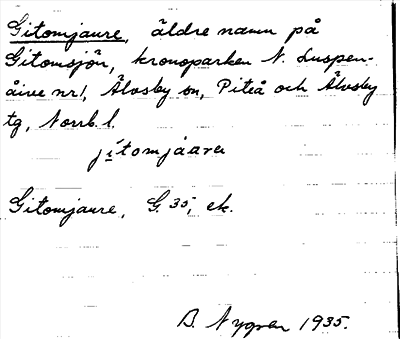 Gitomjaure, äldre namn på
Gitomsjön, kronoparken N. Luspen-
åive nr 1, Älvsby sn, Piteå och Älvsby
tg, Norrb. l.
jítomjaavrə
Gitomjaure, G. 35, ek.
B. Nygren 1935.